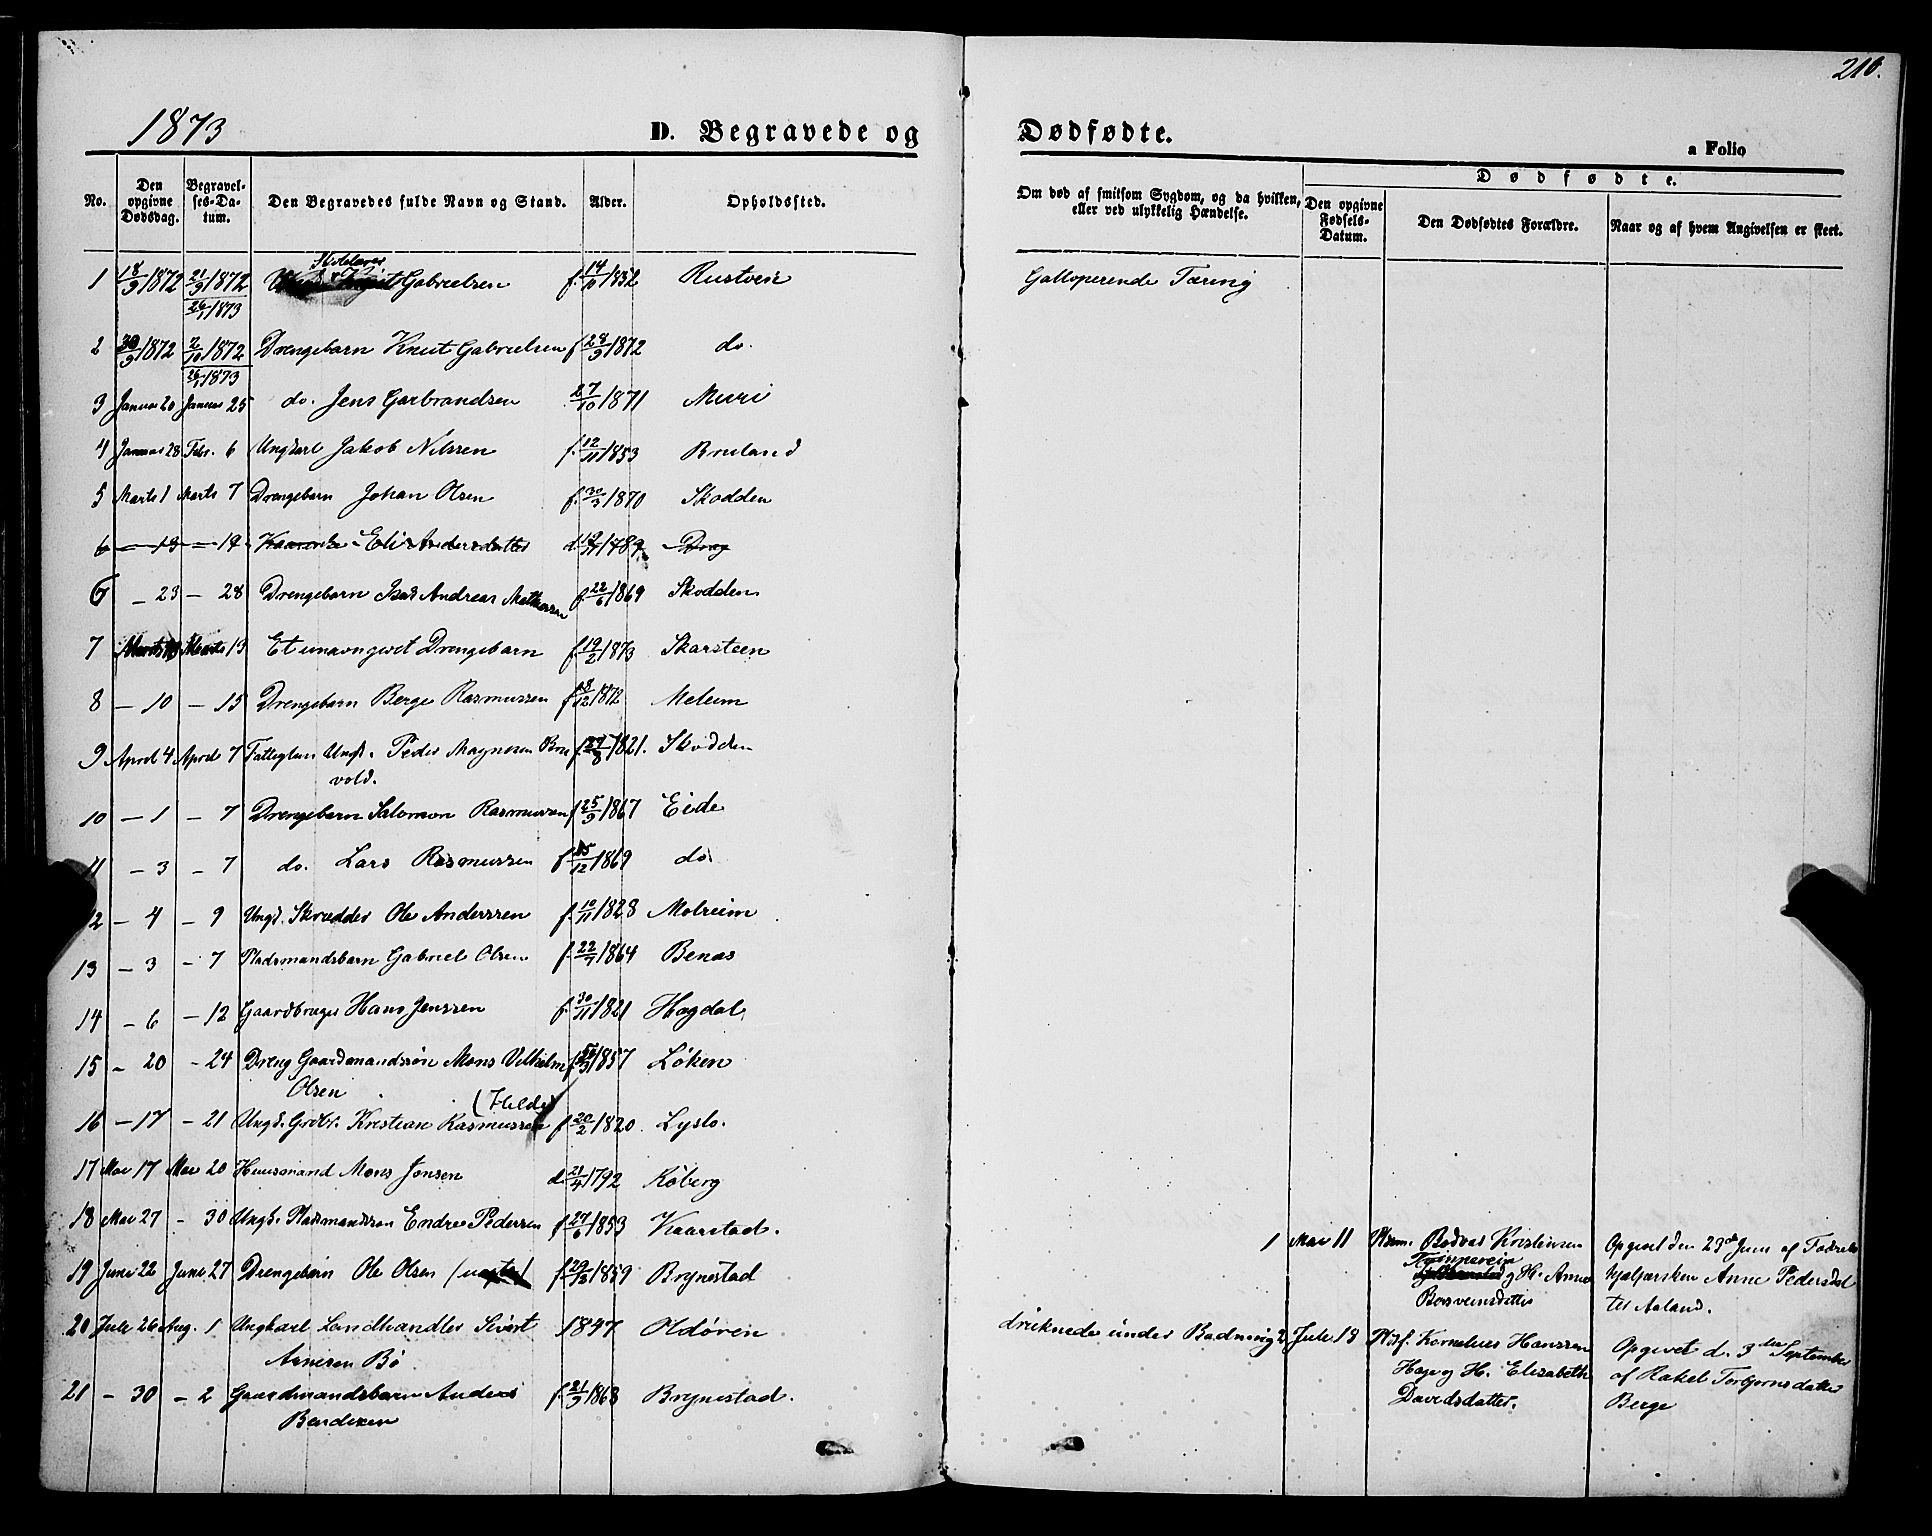 216.
1873
D. Begravede og Dødfødte.
a Folio
No. Den opgivne Dødsdag. Begravelses-Datum. Den Begravedes fulde Navn og Stand. Alder. Opholdssted. Om død af smitsom Sygdom, og da hvilken, eller ved ulykkelig Hændelse. Dødfødte. Den opgivne Fødsels-Datum. Den Dødfødtes Forældre. Naar og af hvem Angivelsen er skeet.
1 18/9 1872 21/9 1872 26/1 1873 Gabrielsen f. 14/10 1832 Rustøen Galloperende Tæring
2 30/9 1872 2/10 1872 26/1 1873 Drengebarn Knut Gabrielsen f 28/9 1872 do.
3 Januar 20 Januar 25 do. Jens Garbrandsen 27/10 1871 Muri
4 Januar 28 Febr. 6 Ungkarl Jakob Nilssen f. 12/11 1853 Bruland
5 Marts 1 Marts 7 Drengebarn Johan Olsen f. 30/3 1870 Skodden
6 — 13 — 19 Eli Andersdatter d. 1789 Drag
6 — 23 — 28 Drengebarn Isak Andreas f. 22/6 1869 Skodden
7 Marts Marts 13 Et unavngivet Drengebarn f. 19/2 1873 Skarsteen
8 — 10 — 15 Drengebarn Berge Rasmussen f 12 1872 Melum
9 April 4 April 7 Fattiglem Ungk. Peder Magnesen Bru f. 1821. Skodden
vold.
10 — 1 — 7 Drengebarn Salomon Rasmussen f 25/9 1867 Eide
11 — 3 — 7 do. Lars Rasmussen f 15/12 1869 do
12 — 4 — 9 Ungk. Skrædder Ole Anderssen f. 10/11 1828 Molreim
13 — 3 — 7 Pladsmandsbarn Gabriel Olsen f. 22/7 1864 Benas
14 — 6 — 12 Gaardbruger Hans Jenssen f. 30/11 1821 Hogdal
15 — 20 — 24 Dreng Gaardmandssøn Mons Vilhelm f. 1857 Løken
Olsen (Hilde)
16 — 17 — 21 Ungk. Grdbr. Kristian Rasmussen f 20/2 1820 Lyslo.
17 Mai 17 Mai 20 Huusmand Mons Jonsen d. 21/4 1792 Røberg
18 Mai 27 — 30 Ungk. Pladsmandssøn Endre Pedersen f 27/6 1853 Kaarstad. 1 Mai 11 Bødvar Kristensen Opgivet den 23de Juni af Jordemo
19 Juni 22 Juni 27 Drengebarn Ole Olsen f 29/3 1859 Brynestad og H. Anne hjælpersken Anne Pedersdat
Børsveinsdatter ter Aaland.
20 Juli 26 Aug. 1 Ungkarl Landhandler Sivert 1847 Oldøren druknede under Badning 2 Juli 18 Kornelius Hanssen Opgivet d. 3die September
Arnesen Bø Hage og H. Elisabeth af Rakel Torbjørnsdatter
21 — 30 — 2 Gaardmandsbarn Anders f. 21/9 1868 Brynestad. Davidsdatter. Berge
Bendixen